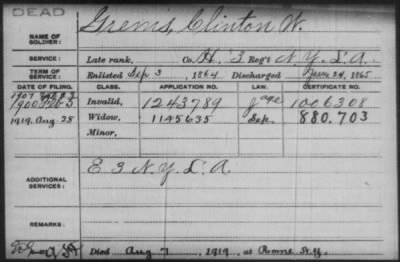 DEAD
Grems, Clinton W.
NAME OF SOLDIER:
SERVICE: Late rank, Co. H. 3 Reg't N.Y. L. A.
TERM OF SERVICE: Enlisted Sep 3, 1864 Discharged June 24, 1865
DATE OF FILING. CLASS. APPLICATION NO. LAW. CERTIFICATE NO.
1900 Feb 5 Invalid, 1243789 1006308
1919. Aug-28 Widow, 1145635 Sep. 880.703
Minor,
ADDITIONAL SERVICES: E 3 N.Y. L. A.
REMARKS:
Died Aug 7, 1919, at Rome N.Y.